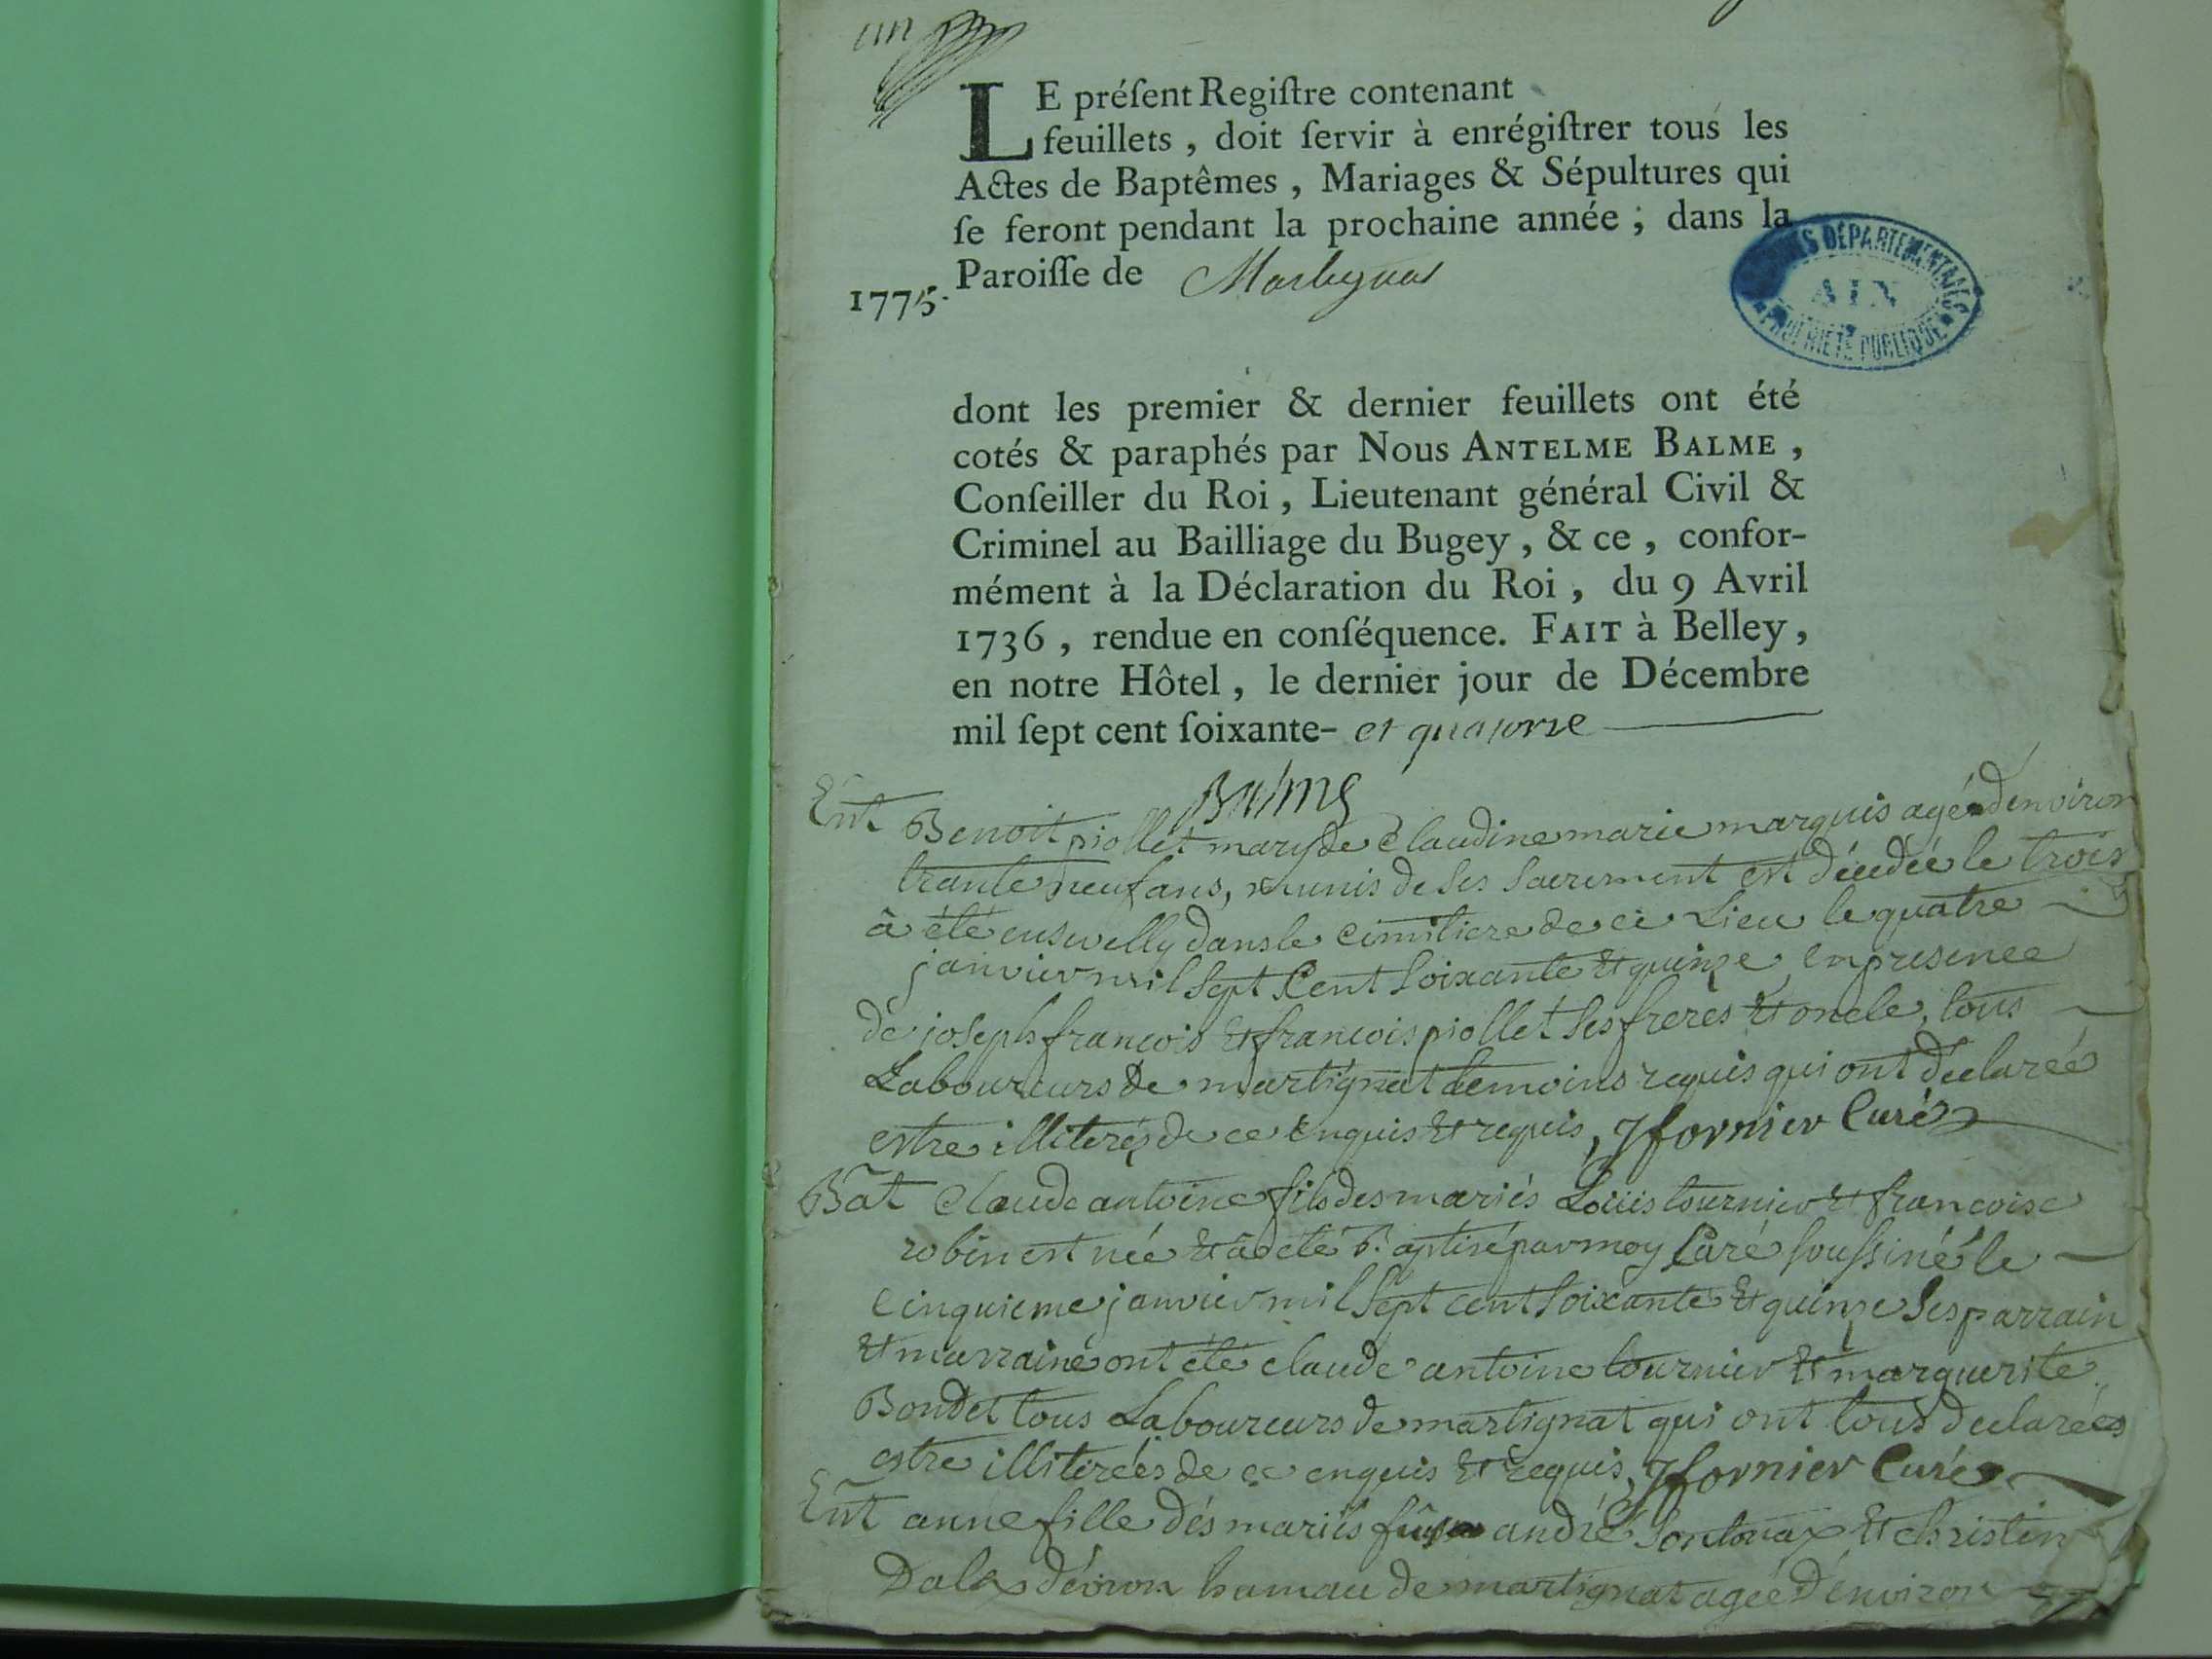 un
LE préſent Regiſtre contenant
feuillets, doit ſervir à enrégiſtrer tous les
Actes de Baptêmes, Mariages & Sépultures qui
ſe feront pendant la prochaine année; dans la
Paroiſſe de Martignat
1775.
ARCHIVES DÉPARTEMENTALES
AIN
PROPRIÉTÉ PUBLIQUE
dont les premier & dernier feuillets ont été
cotés & paraphés par Nous ANTELME BALME,
Conſeiller du Roi, Lieutenant général Civil &
Criminel au Bailliage du Bugey, & ce, confor-
mément à la Déclaration du Roi, du 9 Avril
1736, rendue en conſéquence. FAIT à Belley,
en notre Hôtel, le dernier jour de Décembre
mil ſept cent ſoixante- et quatorze
Balme
Ent Benoit piollet mary de Claudine marie marquis agé denviron
trante neuf ans, munis de ses sacrement est décédée le trois
à été ensevelly dans le cimitiere de ce Lieu le quatre
janvier mil sept cent soixante et quinze en presence
de joseph francois et francois piollet ses freres et oncle, tous
Laboureurs de martignat temoins requis qui ont déclarée
estre illiterés de ce enquis et requis, Jfornier Curé
Bat Claude antoine fils des mariés Loüis tournier et francoise
robin est née et à été Baptisé par moy Curé soussiné le
cinquieme janvier mil sept cent soixante et quinze ses parrain
et marraine ont été claude antoine tournier et marguerite
Bondet tous Laboureurs de martignat qui ont tous declarées
estre illiterées de ce enquis et requis, Jfornier Curé
Ent anne fille dés mariés andré Sonthonax et christin
Dala d'évron hamau de martignat agée d'environ